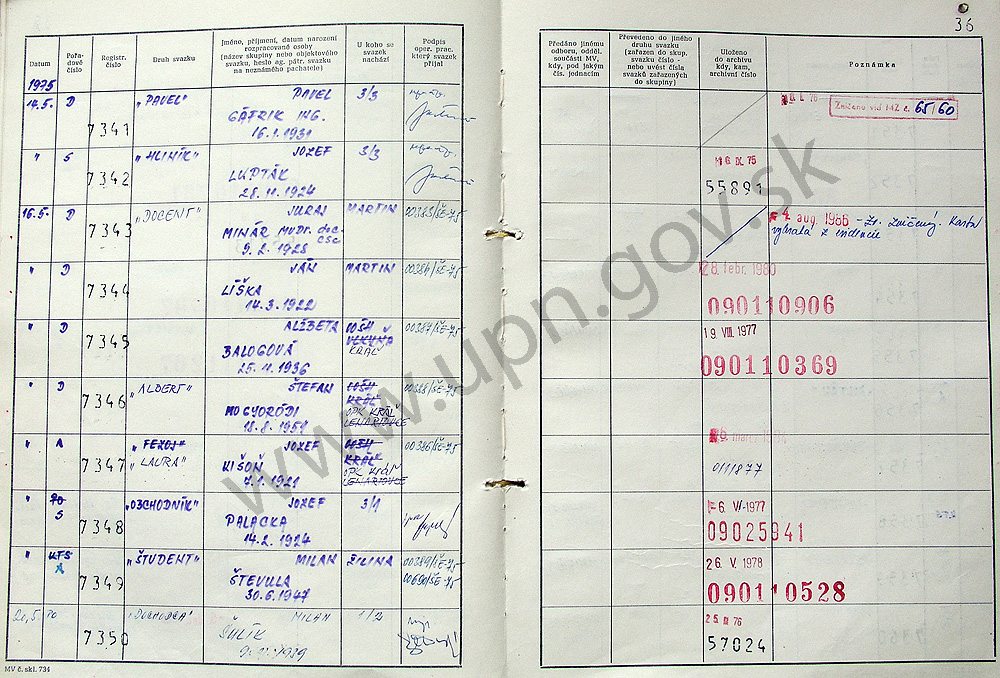 36
Datum
Pořadové číslo
Registr. číslo
Druh svazku
Jméno, příjmení, datum narození rozpracované osoby (název skupiny nebo objektového svazku, heslo ag. pátr. svazku na neznámého pachatele)
U koho se svazek nachází
Podpis oper. prac. který svazek přijal
Předáno jinému odboru, odděl. součásti MV, kdy, pod jakým čís. jednacím
Převedeno do jiného druhu svazku (zařazen do skup. svazku číslo - nebo uvést čísla svazků zařazených do skupiny)
Uloženo do archivu kdy, kam, archivní číslo
Poznámka
1975
14.5. D 7341 "PAVEL" PAVEL 3/3
GÁFRIK ING.
16.1.1931
Zničeno viz MZ č. 65/60
" S 7342 "HLINÍK" JOZEF 3/3
LUPTÁK
28.11.1924
IX. 75
55891
16.5. D 7343 "DOCENT" JURAJ MARTIN 00385/ŠE-75
MINÁR MUDr. doc. CSc
9.2.1928
4. aug. 1986 - Zv. zničený. Karta
vybratá z evidencie
" D 7344 JÁN MARTIN 00386/ŠE-75
LÍŠKA
14.3.1922
28. febr. 1980
090110906
" D 7345 ALŽBETA 00387/ŠE-75
BALOGOVÁ KRÁĽ
25.11.1936
19. VIII. 1977
090110369
" D 7346 "ALBERT" ŠTEFAN 00388/ŠE-75
MOGYORÓDI KRÁĽ
18.8.1951 OPK KRÁĽ
LENARTOVCE
" A 7347 JOZEF 00386/ŠE-75
"LAURA" KIŠOŇ KRÁĽ
7.1.1921 OPK Kráľ
LENARTOVCE
0111877
" PO S 7348 "OBCHODNÍK" JOZEF 3/1
PALACKA
14.2.1924
6. VI. 1977
09025941
" KTS A 7349 "ŠTUDENT" MILAN ŽILINA 00389/ŠE-75
ŠTEVULA 00690/ŠE-75
30.6.1947
26. V. 1978
090110528
PO 7350 "DÔCHODCA" MILAN 1/2
ŠÚLÍK
76
57024
MV č. skl. 734
www.upn.gov.sk